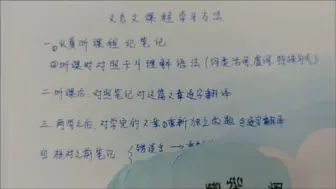 文言文课程学习方法
一.认真听课程记笔记
听课时对照卡片理解语法（词类活用,虚词,特殊句式）
二.听课后,对照笔记对这篇文章逐字翻译
三.两节之后,对学完的文章重新拟上的题逐字翻译
四.核对之前笔记
错误